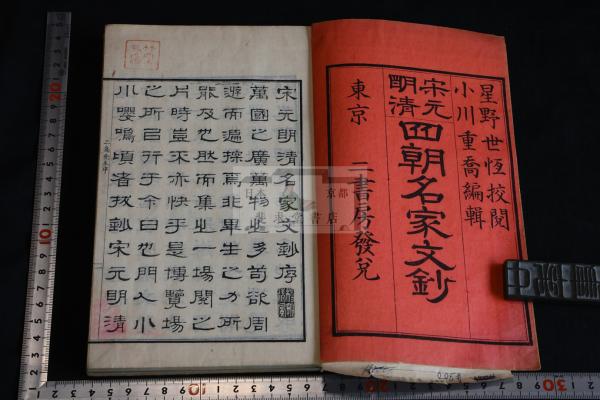 星野世恆挍閲
小川重喬編輯
宋元
明清
四朝名家文鈔
東京
二書房發兌
宋元明清名家文鈔序
萬國之廣萬物之多苟欲周
遊而遍探焉非畢生之力所
能及也然而集之一場閲之
片時豈不亦快乎是博覽場
之所㠯行于今日也門人小
小嚶鳴頃者抜鈔宋元明清
京都
書店